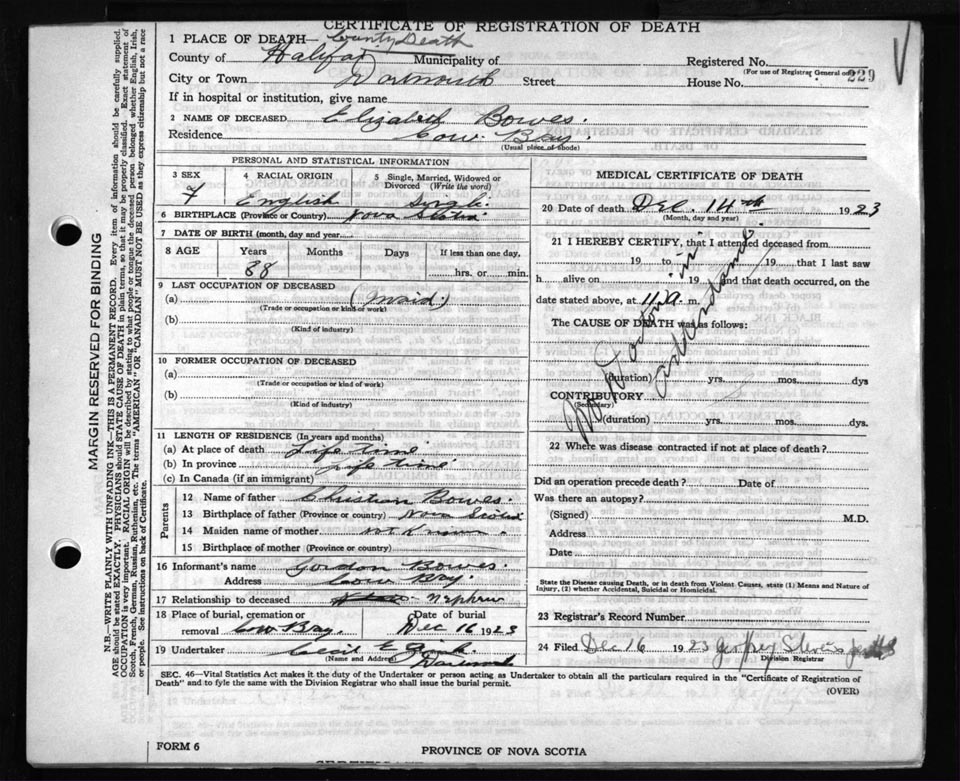 CERTIFICATE OF REGISTRATION OF DEATH
1 PLACE OF DEATH— County Death
County of Halifax Municipality of
Registered No.
(For use of Registrar General only) 229
City or Town Dartmouth Street
House No.
If in hospital or institution, give name
2 NAME OF DECEASED Elizabeth Bowes.
Residence Cow Bay
(Usual place of abode)
PERSONAL AND STATISTICAL INFORMATION
3 SEX
F
4 RACIAL ORIGIN
English
5 Single, Married, Widowed or
Divorced (Write the word)
Single.
6 BIRTHPLACE (Province or Country) Nova Scotia
7 DATE OF BIRTH (month, day and year)
8 AGE Years Months Days If less than one day,
88 hrs. or min.
9 LAST OCCUPATION OF DECEASED
(a) (Maid.)
(Trade or occupation or kind of work)
(b)
(Kind of industry)
10 FORMER OCCUPATION OF DECEASED
(a)
(Trade or occupation or kind of work)
(b)
(Kind of industry)
11 LENGTH OF RESIDENCE (In years and months)
(a) At place of death Life time
(b) In province Life time
(c) In Canada (if an immigrant)
Parents
12 Name of father Christian Bowes.
13 Birthplace of father (Province or country) Nova Scotia
14 Maiden name of mother not Known.
15 Birthplace of mother (Province or country)
16 Informant's name Gordon Bowes.
Address Cow Bay.
17 Relationship to deceased nephew
18 Place of burial, cremation or
removal Cow Bay.
Date of burial
Dec 16 1923
19 Undertaker Cecil E
(Name and Address) Dartmouth
MEDICAL CERTIFICATE OF DEATH
20 Date of death Dec. 14th 1923
(Month, day and year)
21 I HEREBY CERTIFY, that I attended deceased from
19 to 19 that I last saw
h alive on 19 and that death occurred, on the
date stated above, at 11 a. m.
The CAUSE OF DEATH was as follows:
No Doctor in attendance.
(duration) yrs. mos. dys
CONTRIBUTORY
(Secondary)
(duration) yrs. mos. dys.
22 Where was disease contracted if not at place of death?
Did an operation precede death? Date of
Was there an autopsy?
(Signed) M.D.
Address
Date
State the Disease causing Death, or in death from Violent Causes, state (1) Means and Nature of
Injury, (2) whether Accidental, Suicidal or Homicidal.
23 Registrar's Record Number
24 Filed Dec 16 1923 Geoffrey Stevens
Division Registrar
SEC. 46—Vital Statistics Act makes it the duty of the Undertaker or person acting as Undertaker to obtain all the particulars required in the "Certificate of Registration of
Death" and to fyle the same with the Division Registrar who shall issue the burial permit.
(OVER)
FORM 6
PROVINCE OF NOVA SCOTIA
MARGIN RESERVED FOR BINDING
N.B.—WRITE PLAINLY WITH UNFADING INK—THIS IS A PERMANENT RECORD. Every item of information should be carefully supplied.
AGE should be stated EXACTLY. PHYSICIANS should STATE CAUSE OF DEATH in plain terms, so that it may be properly classified. Exact statement of
OCCUPATION is very important. RACIAL ORIGIN will be described by stating to what people or tongue the deceased person belonged whether English, Irish,
Scotch, French, German, Russian, Ruthenian, etc. The terms "AMERICAN" OR "CANADIAN" MUST NOT BE USED as they express citizenship but not a race
or people. See instructions on back of Certificate.